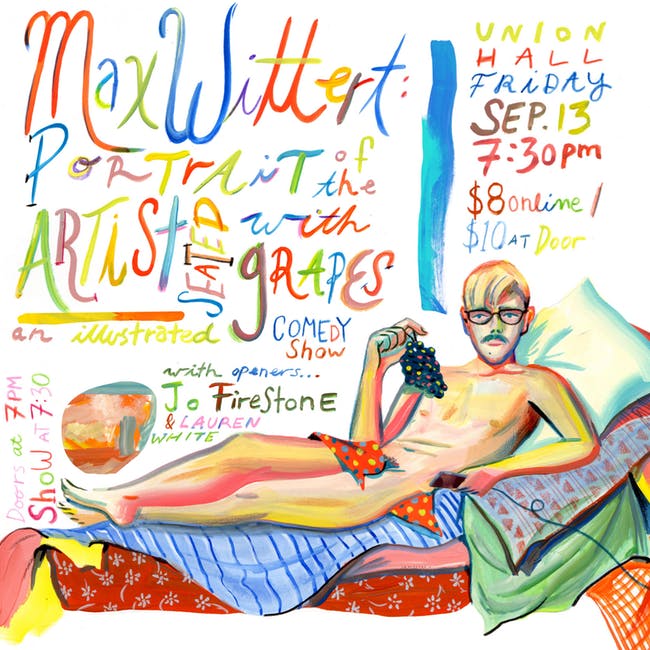 Max Wittert:
PORTRAiT of the
ARTiSt SEATED with
gRAPES
an illustrated COMEDY
Show
with openers...
Jo FiReStoNE
& LAUREN
WHITE
Doors at 7PM
ShoW AT 7:30
UNION
HALL
FRiDAY
SEP. 13
7:30pm
$8 online /
$10 AT Door